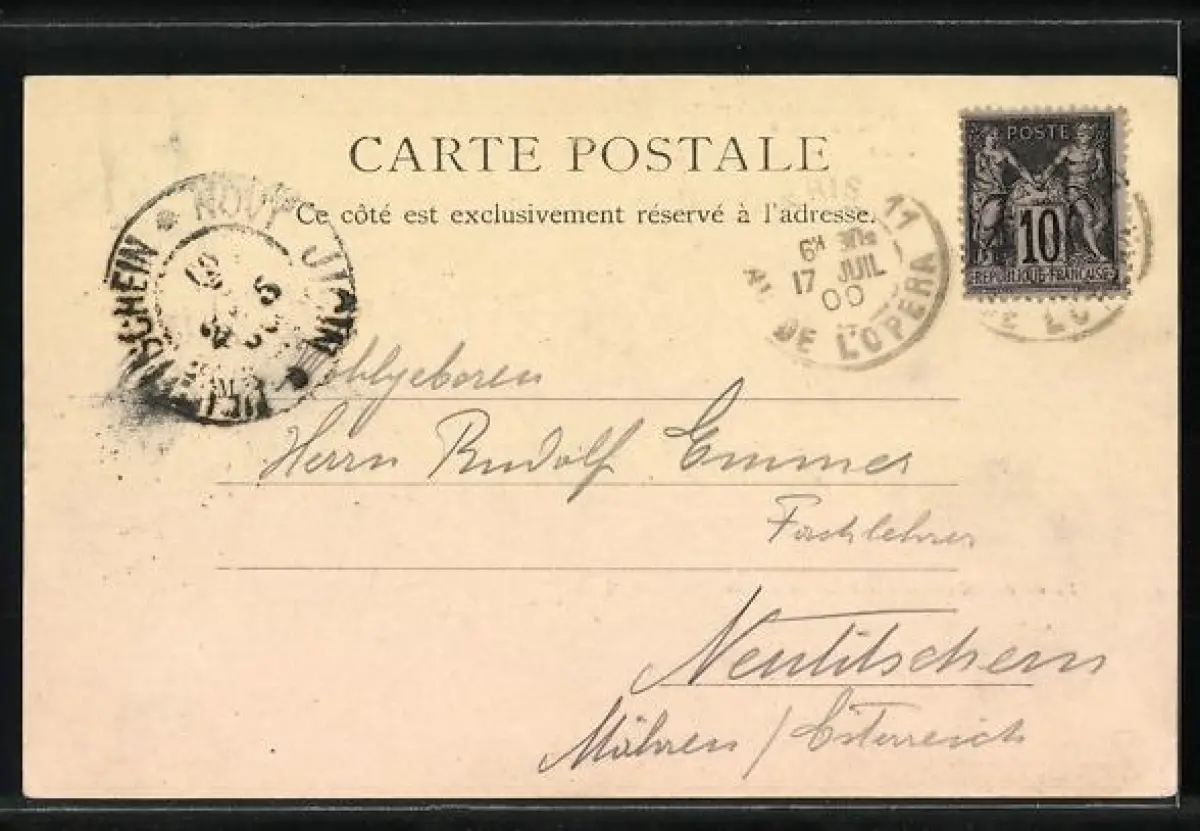 CARTE POSTALE
Ce côté est exclusivement réservé à l'adresse.
POSTE
10
REPUBLIQUE FRANÇAISE
PARIS 11
17 JUIL
00
AV DE L'OPERA
DE L'O
NOVÝ JIČÍN
NEUTITSCHEIN
Wohlgeboren
Herrn Rudolf Emmer
Fachlehrer
Neutitschein
Mähren / Österreich